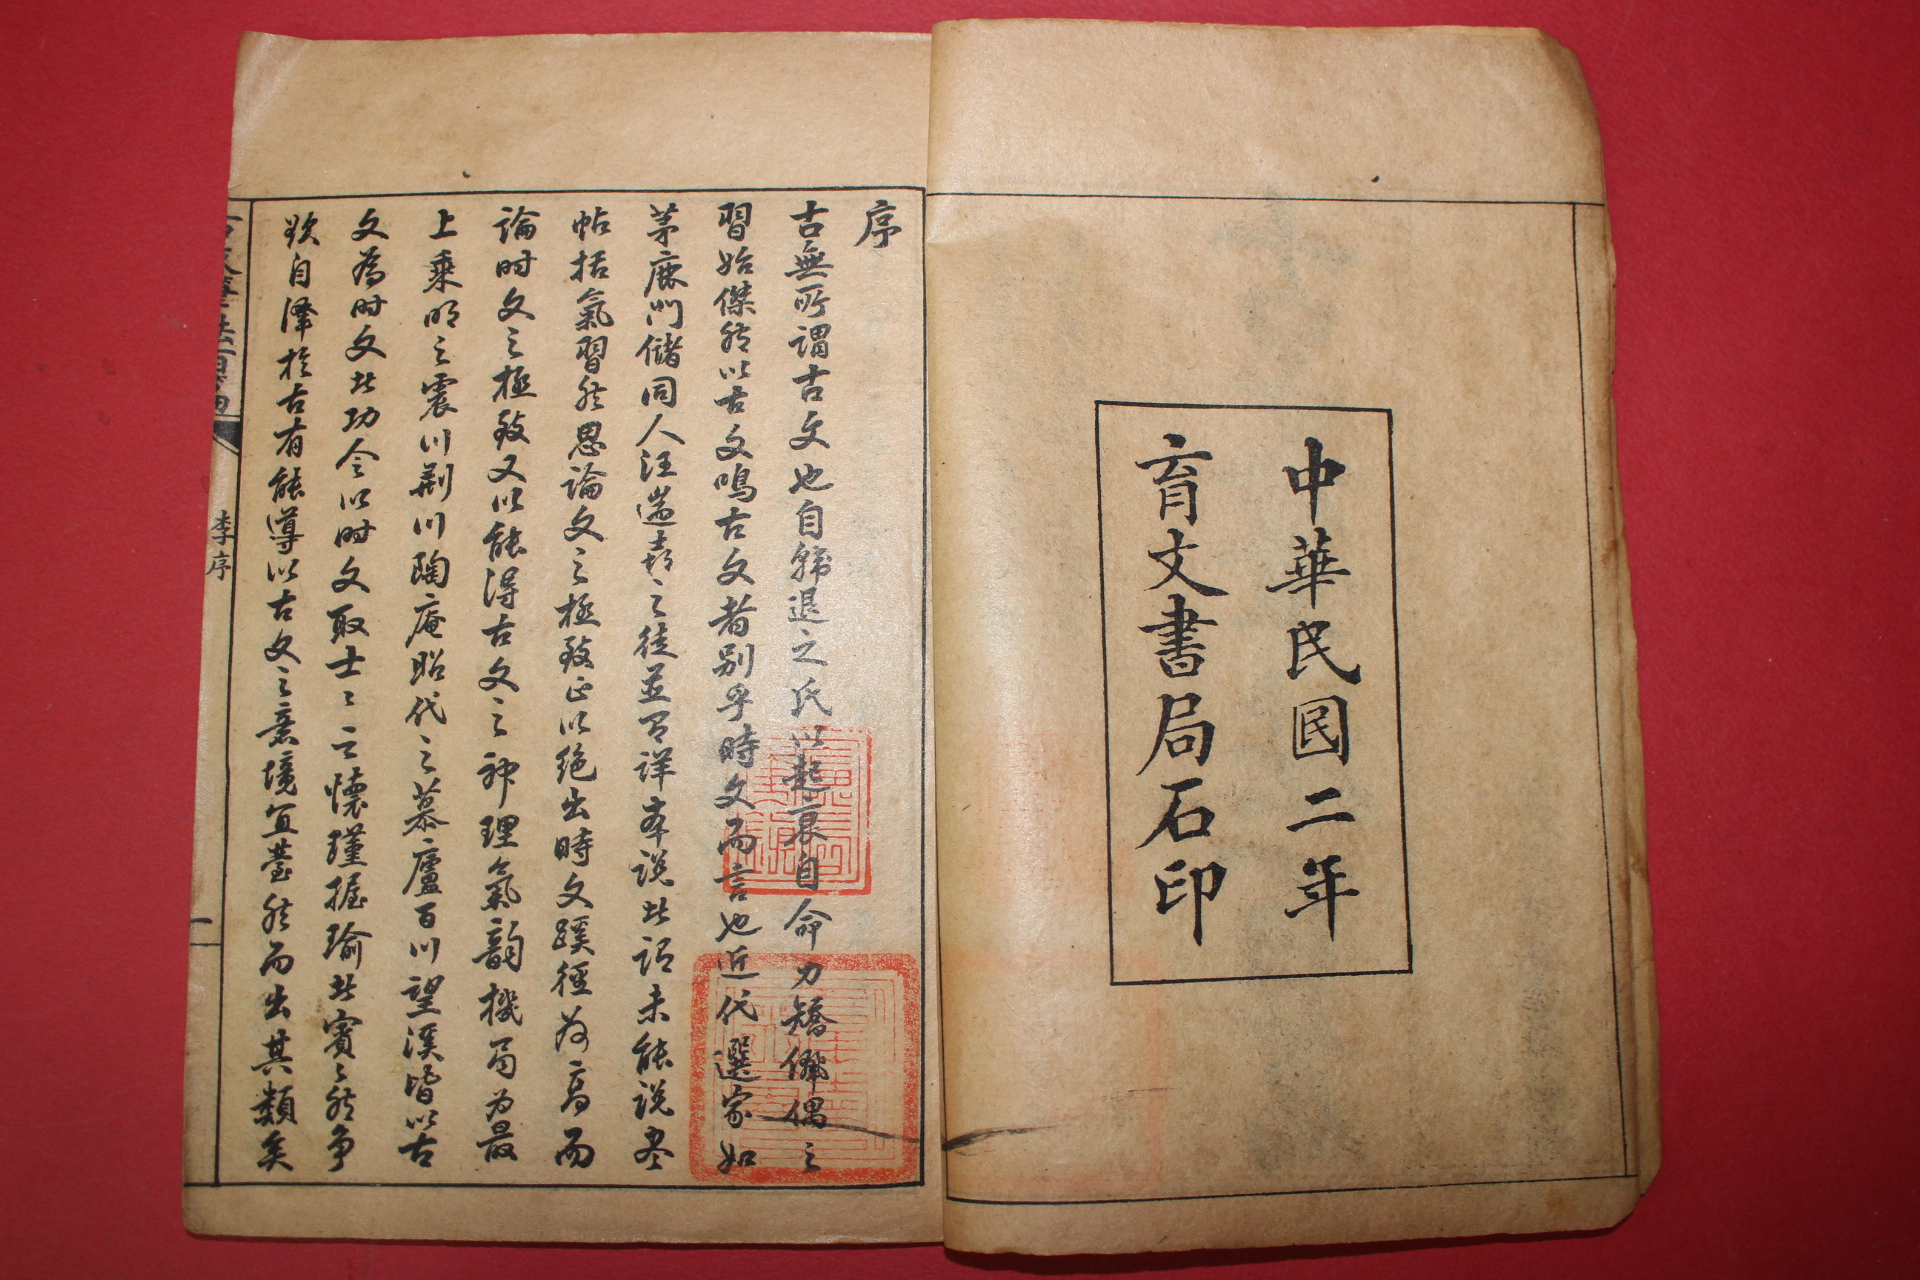 中華民國二年
育文書局石印
序
古無所謂古文也自韓退之氏以起衰自命力矯儷偶之
習始傑然以古文鳴古文者別乎時文而言也近代選家如
茅鹿門儲同人汪遄喜之徒並有評本說此評未能說盡
帖括氣習然愚論文之極致正以絕出時文蹊徑為高而
論時文之極致又以能得古文之神理氣韻機局為最
上乘明之震川荊川陶庵昭代之慕廬百川望溪皆以古
文為時文此功令以時文取士士之懷瑾握瑜者賓賓然爭
欲自澤於古有能導以古文之意境宜躉然而出其類矣
古文筆法百篇
李序
一